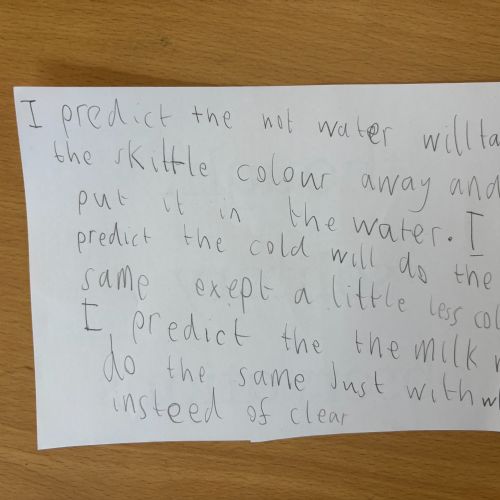 I predict the hot water will
the skittle colour away and
put it in the water. I
predict the cold will do the
same exept a little less
I predict the the milk
do the same Just with
insteed of clear